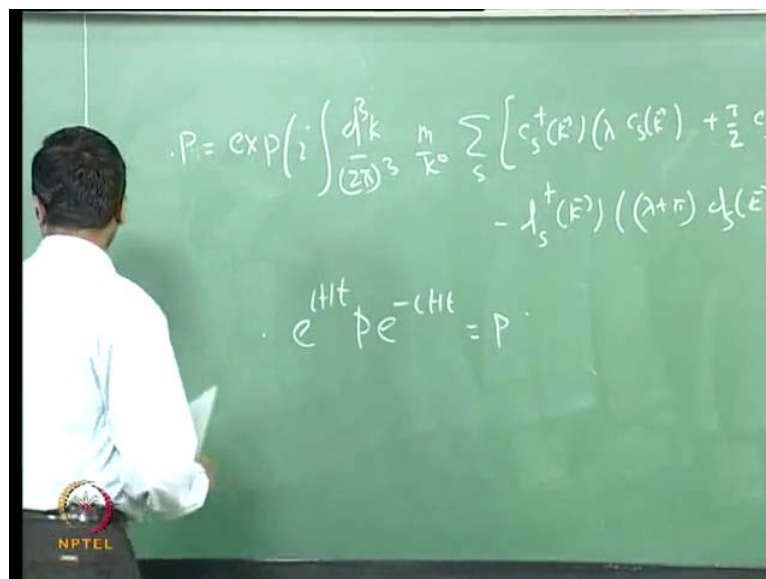 .P = exp(i ∫ d³k/(2π)³ m/k⁰ ∑ₛ [cₛ†(k⃗)(λ cₛ(k⃗) + π/2 c
- dₛ†(k⃗)((λ+π) dₛ(k⃗
. e^{iHt} P e^{-iHt} = P .
NPTEL